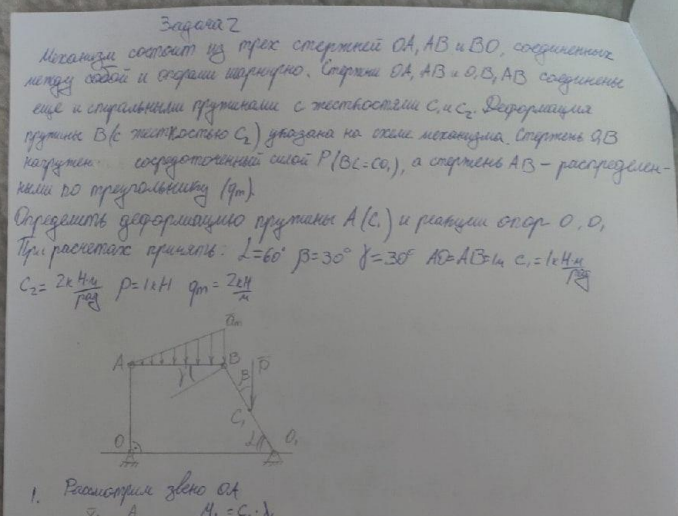 Задача 2
Механизм состоит из трех стержней OA, AB и BO, соединенных
между собой и опорами шарнирно. Стержни OA, AB и O,B, AB соединены
еще и спиральными пружинами с жесткостями C₁ и C₂. Деформация
пружины B (с жесткостью C₂) указана на схеме механизма. Стержень O,B
нагружен сосредоточенный силой P (BC=CO₁), а стержень AB - распределен-
ными по треугольнику (qm).
Определить деформацию пружины A (C₁) и реакции опор O, O₁
При расчетах принять: L=60° β=30° γ=30° AO=AB=1м C₁=1кН·м/рад
C₂= 2кН·м/рад P=1кН qm= 2кН/м
qm
A B P
γ β
C₁
O L O₁
1. Рассмотрим звено OA
A M₁=C₁·λ₁